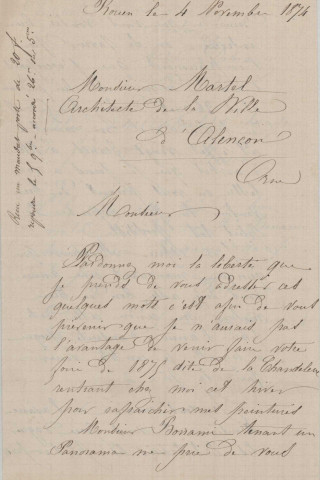 Rouen le 4 Novembre 1874
Monsieur Martel
Architecte de la Ville
d'Alençon
Orne
Monsieur
Pardonnez moi la liberté que
je prends de vous adresser ces
quelques mots c'est afin de vous
prévenir que je n'aurais pas
l'avantage de venir faire votre
foire de 1875 dite de la Chandeleur
rentrant chez moi cet hiver
pour rafraîcher mes peintures
Monsieur Bonami tenant un
Panorama me prie de vous
Reçu un mandat poste de 20 f.
le 5 9bre